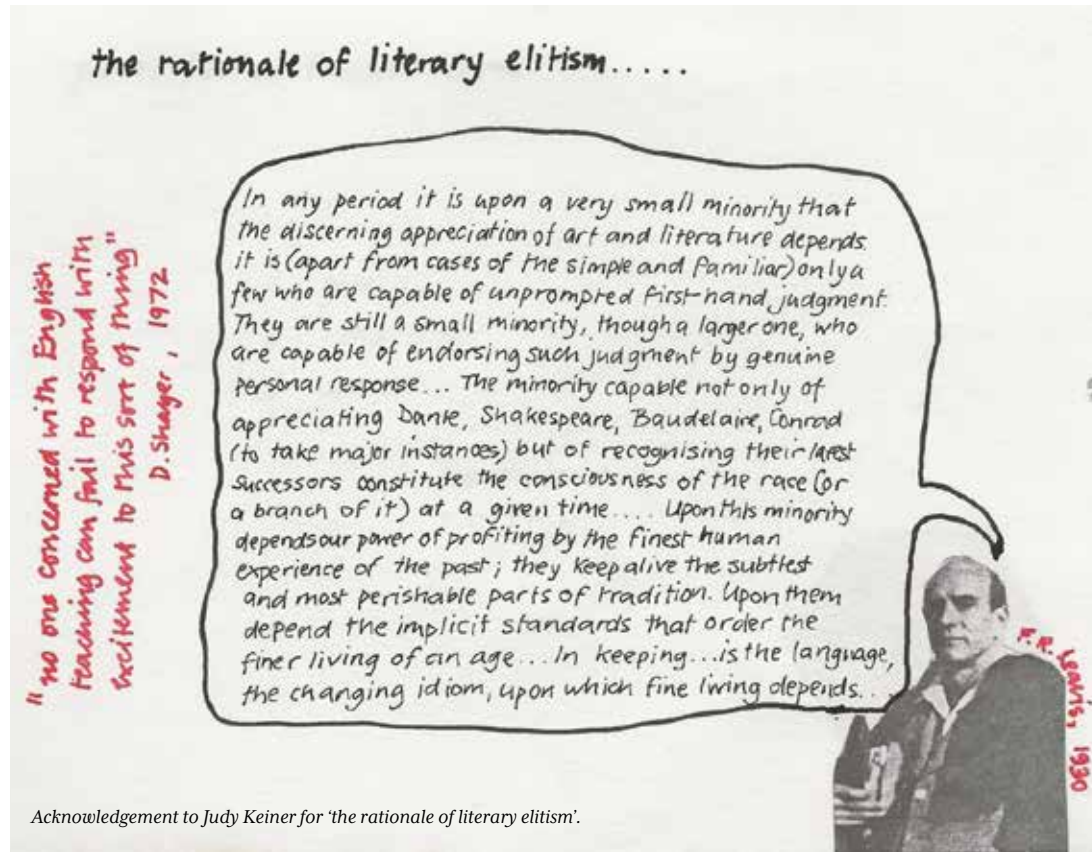 the rationale of literary elitism.....
"no one concerned with English
teaching can fail to respond with
excitement to this sort of thing"
D. Shayer, 1972
In any period it is upon a very small minority that
the discerning appreciation of art and literature depends.
it is (apart from cases of the simple and familiar) only a
few who are capable of unprompted first-hand judgment.
They are still a small minority, though a larger one, who
are capable of endorsing such judgment by genuine
personal response... The minority capable not only of
appreciating Dante, Shakespeare, Baudelaire, Conrad
(to take major instances) but of recognising their latest
successors constitute the consciousness of the race (or
a branch of it) at a given time.... Upon this minority
depends our power of profiting by the finest human
experience of the past; they keep alive the subtlest
and most perishable parts of tradition. Upon them
depend the implicit standards that order the
finer living of an age... In keeping...is the language,
the changing idiom, upon which fine living depends...
F.R. Leavis, 1930
Acknowledgement to Judy Keiner for 'the rationale of literary elitism'.